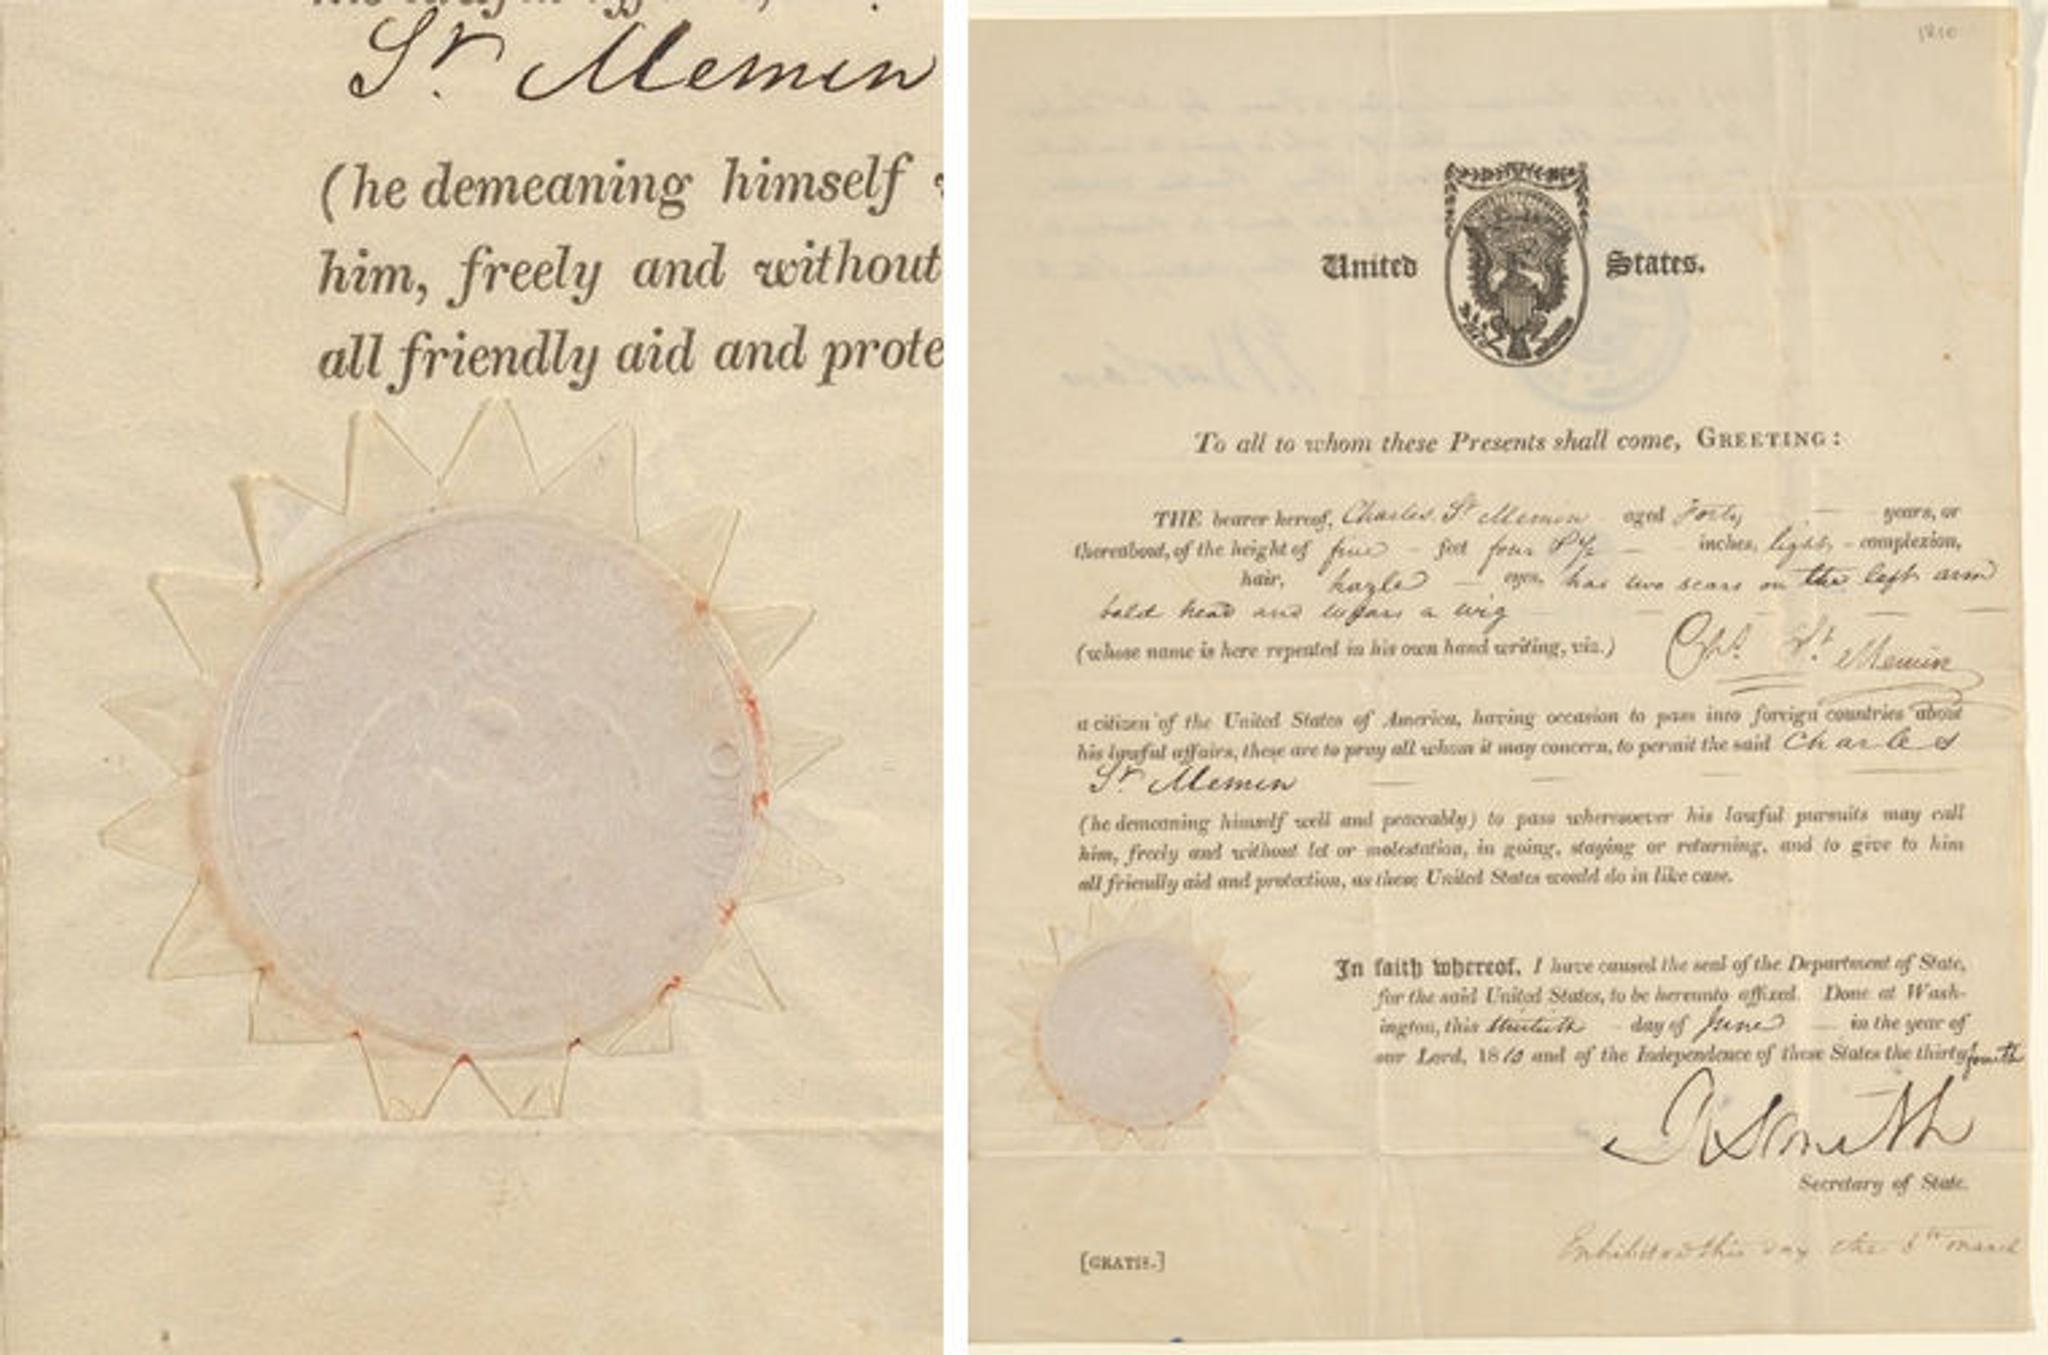 St. Memin
(he demeaning himself
him, freely and without
all friendly aid and prote
1810
United States.
To all to whom these Presents shall come, GREETING:
THE bearer hereof, Charles St Memin aged Forty years, or
thereabout, of the height of five feet four & ½ inches, light complexion,
hair, hazle eyes, has two scars on the left arm
bald head and wears a wig
(whose name is here repeated in his own hand writing, viz.) St. Memin
a citizen of the United States of America, having occasion to pass into foreign countries about
his lawful affairs, these are to pray all whom it may concern, to permit the said Charles
St. Memin
(he demeaning himself well and peaceably) to pass wheresoever his lawful pursuits may call
him, freely and without let or molestation, in going, staying or returning, and to give to him
all friendly aid and protection, as these United States would do in like case.
In faith whereof, I have caused the seal of the Department of State,
for the said United States, to be hereunto affixed. Done at Wash-
ington, this day of June in the year of
our Lord, 1810 and of the Independence of these States the thirty fourth
R Smith
Secretary of State.
Exhibited this day the 8th march
[GRATIS.]